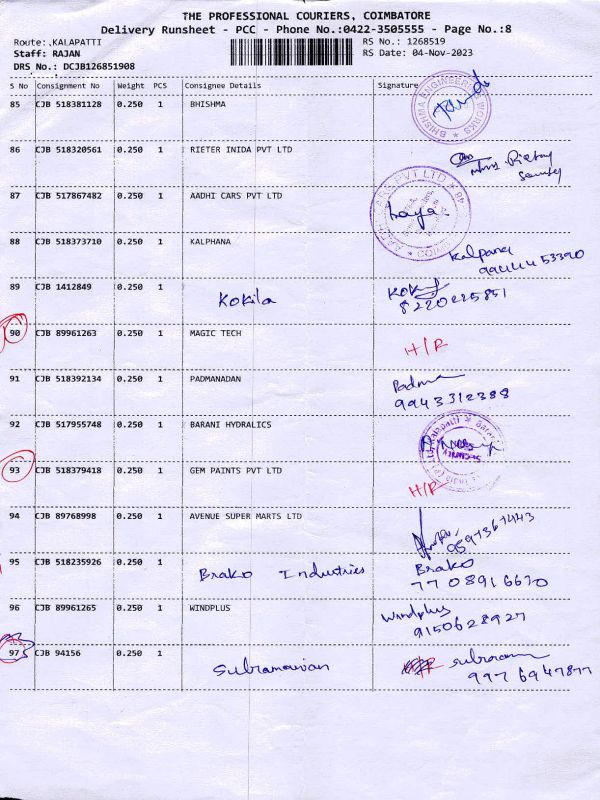 THE PROFESSIONAL COURIERS, COIMBATORE
Delivery Runsheet - PCC - Phone No.:0422-3505555 - Page No.:8
Route: ,KALAPATTI RS No.: 1268519
Staff: RAJAN RS Date: 04-Nov-2023
DRS No.: DCJB126851908
S No Consignment No Weight PCS Consignee Details Signature
85 CJB 518381128 0.250 1 BHISHMA
BHISHMA ENGINEERING WORKS
86 CJB 518320561 0.250 1 RIETER INIDA PVT LTD
87 CJB 517867482 0.250 1 AADHI CARS PVT LTD
88 CJB 518373710 0.250 1 KALPHANA
Kalpana
9944453390
89 CJB 1412849 0.250 1 Kokila
8220225851
90 CJB 89961263 0.250 1 MAGIC TECH H/R
91 CJB 518392134 0.250 1 PADMANADAN
Padma
9943312388
92 CJB 517955748 0.250 1 BARANI HYDRALICS
93 CJB 518379418 0.250 1 GEM PAINTS PVT LTD H/R
94 CJB 89768998 0.250 1 AVENUE SUPER MARTS LTD
9597367443
95 CJB 518235926 0.250 1 Brako Industries Brako
7708916670
96 CJB 89961265 0.250 1 WINDPLUS Windplus
9150628927
97 CJB 94156 0.250 1 Subramanian
9976947877